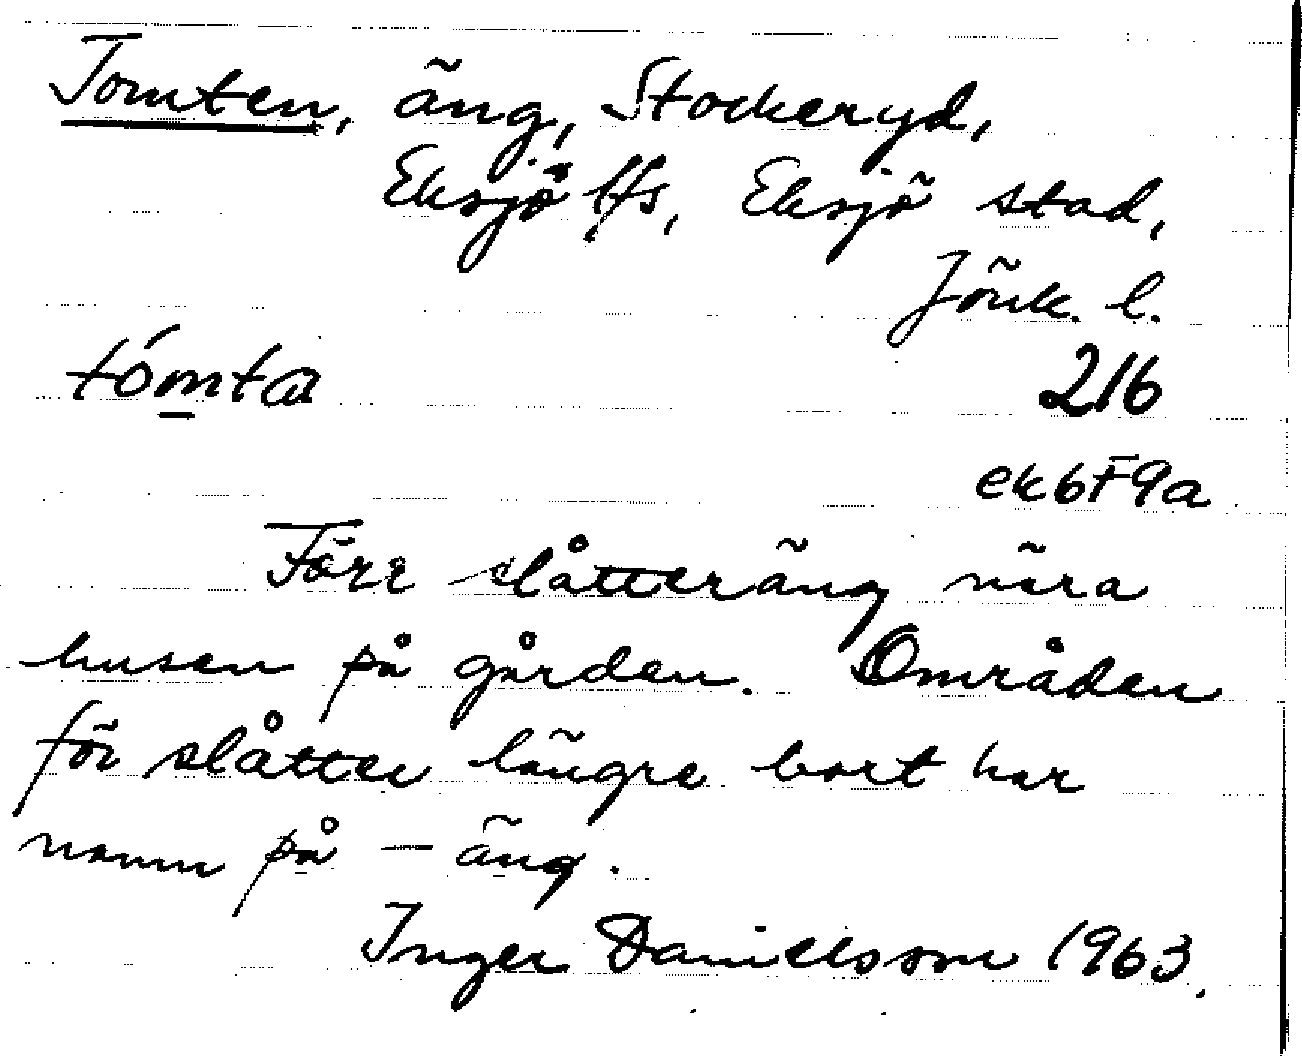 Tomten, äng, Stockeryd,
Eksjö lfs, Eksjö stad,
Jönk. l.
tómta 216
ek6F9a
Förr slåtteräng nära
husen på gården. Områden
för slåtter längre bort har
namn på - äng.
Inger Danielsson 1963.